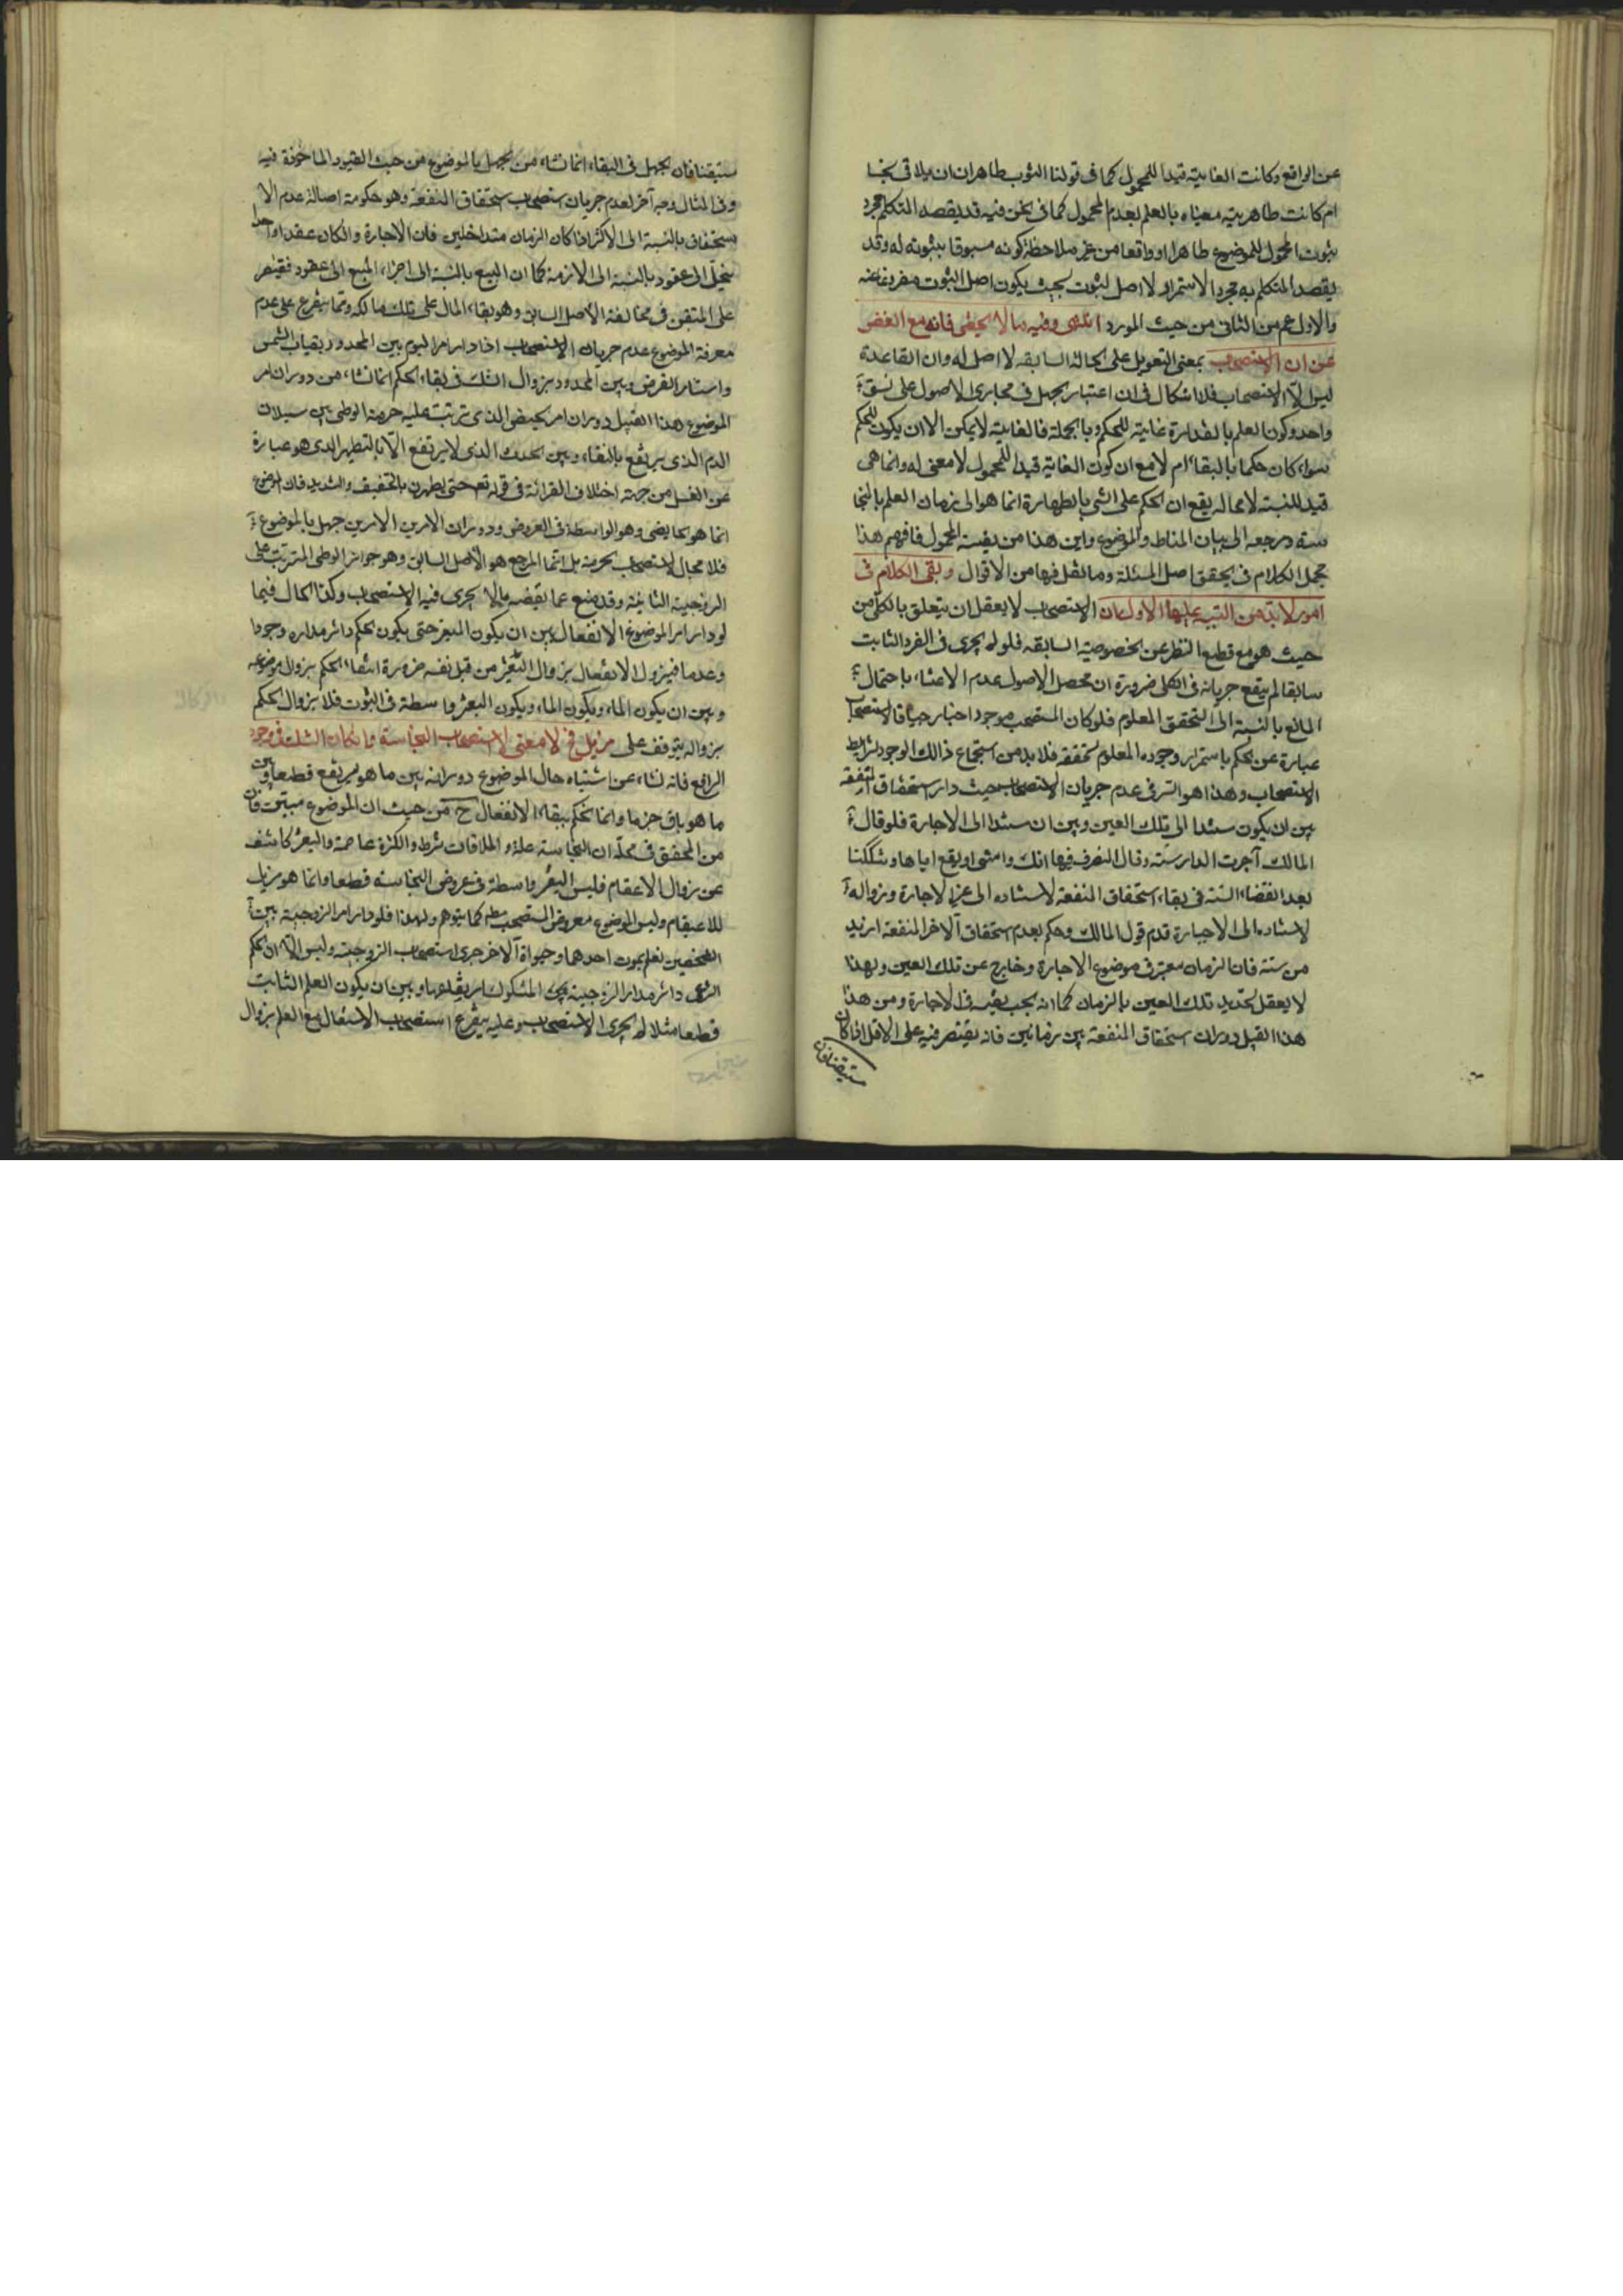 عن الواقع وكانت الغاية قيدا للمحمول كما فى قولنا الثوب طاهر ان لم يلاق نجسا
ام كانت طاهريته مغياه بالعلم بعدم المحمول كما فى نحن فيه قد يقصد المتكلم مجرد
ثبوت المحمول للموضوع ظاهرا او واقعا من غير ملاحظة كونه مسبوقا بثبوته له وقد
يقصد المتكلم به مجرد الاستمرار لا اصل الثبوت بحيث يكون اصل الثبوت مفروغا عنه
والاول اعم من الثانى من حيث المورد انتهى وفيه ما لا يخفى فانه مع الغض
عن ان الاستصحاب بمعنى التعويل على الحالة السابقه لا اصل له وان القاعدة
ليس الا الاستصحاب فلا اشكال فى ان اعتبار الجهل فى مجارى الاصول على نسق
واحد وكون العلم بالقذارة غاية للحكم وبالجملة فالغاية لا يمكن الا ان يكون للحكم
سواء كان حكما بالبقاء ام لا مع ان كون الغاية قيدا للمحمول لا معنى له وانما هى
قيد للنسبة لا محاله يقع ان الحكم على الشى بالطهارة انما هو الى زمان العلم بالنجا
سته ومرجعه الى بيان المناط والموضوع واين هذا من المحمول فافهم هذا
مجمل الكلام فى تحقق اصل المسئلة وما نقل فيها من الاقوال وبقى الكلام فى
امور لا بد من التنبيه عليها الاول ان الاستصحاب لا يعقل ان يتعلق بالكلى من
حيث هو مع قطع النظر عن الخصوصية السابقه فلو لم يجرى فى الفرد الثابت
سابقا لم يقع جريانه فى الكلى ضرورة ان محصل الاصول عدم الاعتناء باحتمال
المانع بالنسبة الى التحقق المعلوم فلو كان المستصحب موجودا خارجيا فالاستصحاب
عبارة عن الحكم باستمرار وجوده المعلوم تحققه فلا بد من استجماع ذالك الوجود لشرايط
الاستصحاب وهذا هو السر فى عدم جريان الاستصحاب حيث دار استحقاق المنفعة
بين ان يكون مستندا الى تلك العين وبين ان مستندا الى الاجارة فلو قال
المالك آجرت الدار سنة وقال المتصرف فيها وشككنا
بعد انقضاء السنة فى بقاء استحقاق المنفعة لاستناده الى غير الاجارة وزواله
لاستناده الى الاجارة قدم قول المالك وحكم بعدم استحقاق الاخر المنفعة ازيد
من سنة فان الزمان معتبر فى موضوع الاجارة وخارج عن تلك العين ولهذا
لا يعقل تحديد تلك العين بالزمان كما انه يجب يقينه فى الاجارة ومن هذا
هذا القبيل دوران استحقاق المنفعة بين زمانين فانه يقتصر فيه على الاقل اذا كان
مستيقنا فان
مستيقنا فان الجهل فى البقاء انما نشاء من الجهل بالموضوع من حيث القيود الماخوذة فيه
وفى المثال وجه آخر لعدم جريان استصحاب استحقاق المنفعة وهو حكومة اصالة عدم الا
ستحقاق بالنسبة الى الاكثر اذا كان الزمان متداخلين فان الاجارة وان كان عقدا واحدا
ينحل الى عقود بالنسبة الى الازمنة كما ان البيع بالنسبة الى اجزاء المبيع الى عقود فيقتصر
على المتقن فى مخالفة الاصل السابق وهو بقاء المال على ملك مالكه ومما يتفرع على عدم
معرفة الموضوع عدم جريان الاستصحاب اذا دار امر اليوم بين المحدود بغياب الشمس
واستار القرص وبين المحدود بزوال الشك فى بقاء الحكم انما نشاء من دوران امر
الموضوع هذا القبيل دوران امر الحيض الذى تترتب عليه حرمة الوطى بين سيلان
الدم الذى يرتفع بالنقاء وبين الحدث الذى لا يرتفع الا بالتطهير الذى هو عبارة
عن الغسل من جهة اختلاف القرائة فى قوله تع حتى يطهرن بالتخفيف والتشديد فان الموضوع
انما هو الحايض وهو الواسطة فى العروض ودوران الامر بين الامرين جهل بالموضوع
فلا مجال لاستصحاب الحرمة بل انما المرجع هو الاصل السابق وهو جواز الوطى المترتب على
الزوجية الثابتة وقد منع عما نقيضه ما لا يجرى فيه الاستصحاب وكذا الحال فيما
لو دار امر الموضوع الانفعال بين ان يكون المتغير حتى يكون الحكم دائر مداره وجودا
وعدما فيزول الانفعال بزوال التغير من قبل نفسه ضرورة انتفاء الحكم بزوال موضوعه
وبين ان يكون الماء ويكون الماء ويكون التغير واسطة فى الثبوت فلا يزوال الحكم
بزواله يتوقف على مزيل فح لا معنى لاستصحاب النجاسة وان كان الشك فى وجود
الرافع فانه نشاء عن اشتباه حال الموضوع دورانه بين ما هو يرتفع قطعا وبين
ما هو باق جزما وانما نحكم ببقاء الانفعال ح من حيث ان الموضوع مبيتن فان
من المحقق فى محله ان النجاسة علة والملاقات شرط والكثرة عاصمة والتغير كاشف
عن زوال الاعتصام فليس التغير واسطة فى عروض النجاسة قطعا وانما هو مزيل
للاعتصام وليس الموضوع معروض المستصحب مطلقا كما يتوهم ولهذا فلو دار امر الزوجية بين
الشخصين نعلم بموت احدهما وحيواة الاخر جرى استصحاب الزوجية وليس الا ان الحكم
الشرعى دائر مدار الزوجية المشكوك ارتفاعها وبين ان يكون العلم الثابت
قطعا مثلا لم يجرى الاستصحاب وعليه يتفرع استصحاب الاشتغال مع العلم بزوال